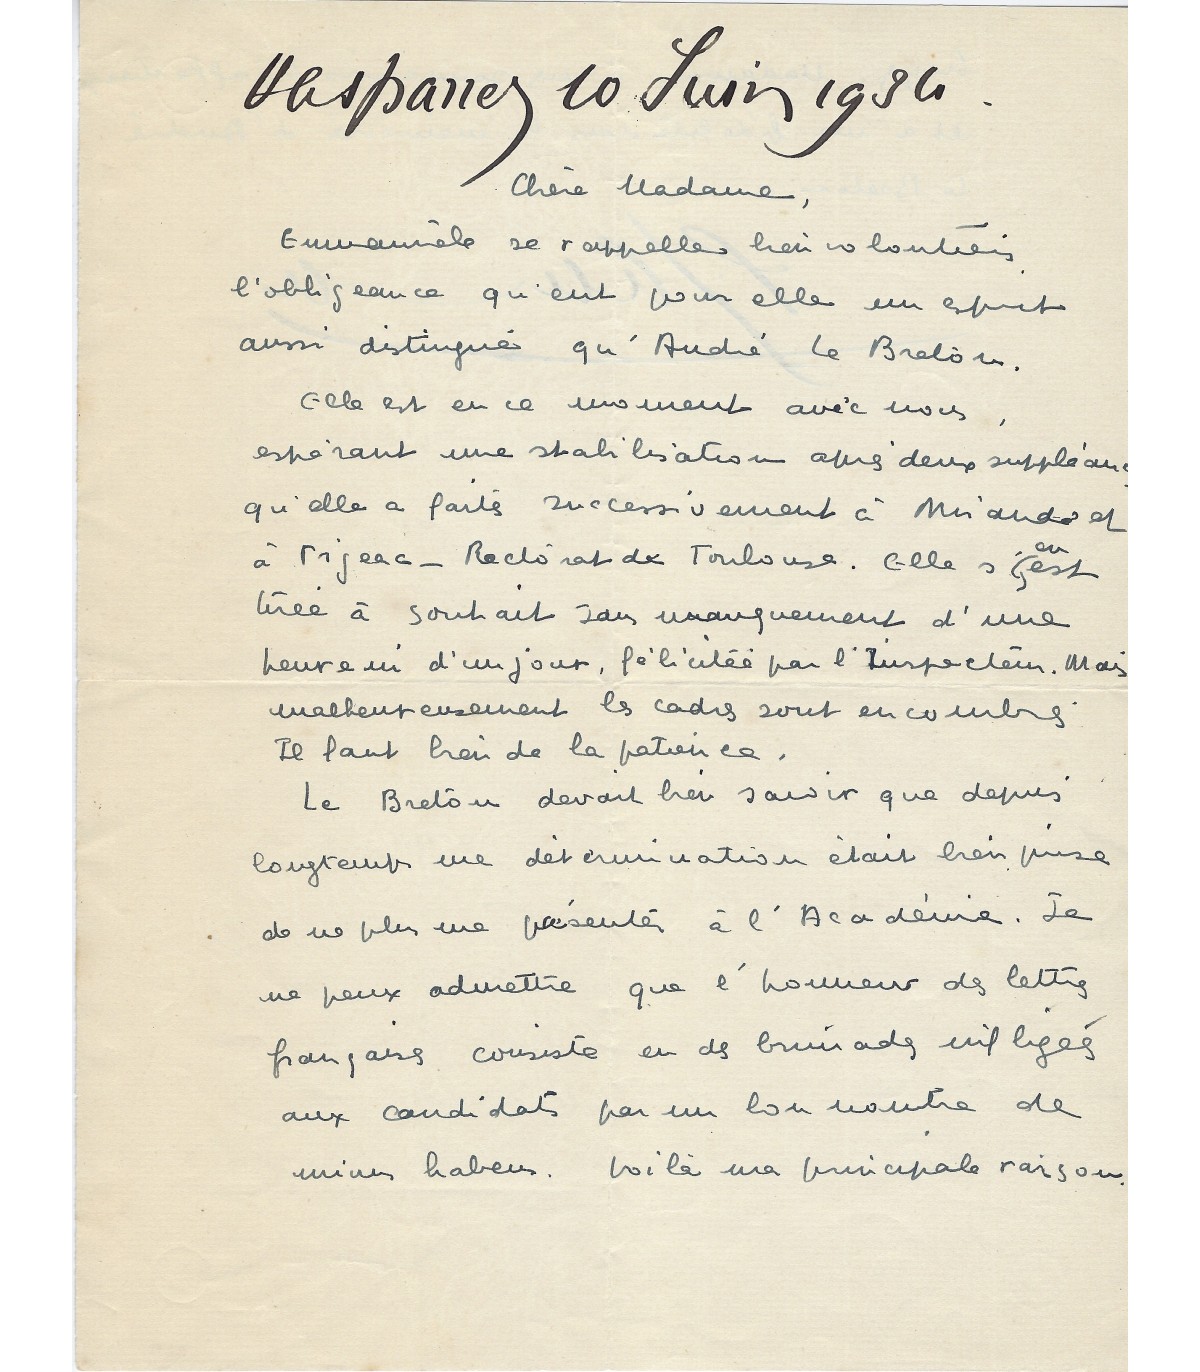 10 Juin 1934.
Chère Madame,
Emmanuèle se rappelle bien volontiers
l'obligeance qu'eut pour elle un esprit
aussi distingué qu'André Le Breton.
Elle est en ce moment avec nous,
espérant une stabilisation après deux suppléanc
qu'elle a faites successivement à Mirande et
à Figeac - Rectorat de Toulouse. Elle s'en est
tirée à souhait sans manquement d'une
heure ni d'un jour, félicitée par l'Inspecteur. Mais
malheureusement les cadres sont encombrés
Il faut bien de la patience.
Le Breton devait bien savoir que depuis
longtemps ma détermination était bien prise
de ne plus me présenter à l'Académie. Je
ne peux admettre que l'honneur des lettres
françaises consiste en des brimades infligées
aux candidats par un bon nombre de
minus habens. Voilà ma principale raison.